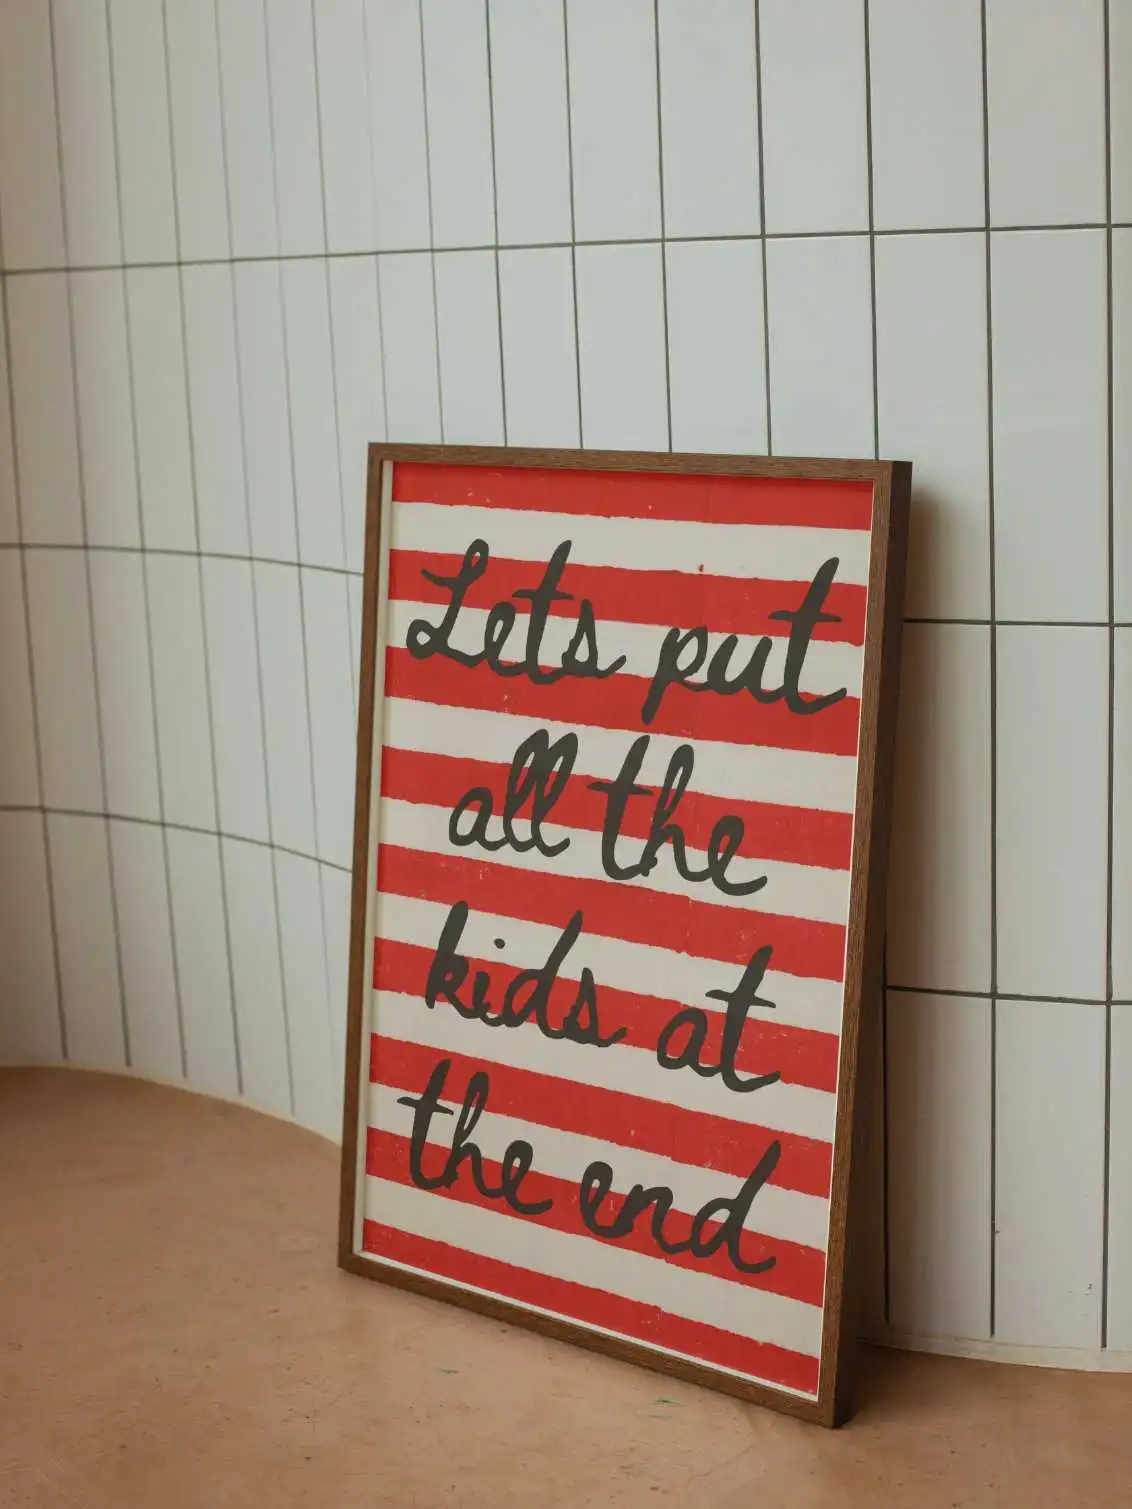 Lets put
all the
kids at
the end